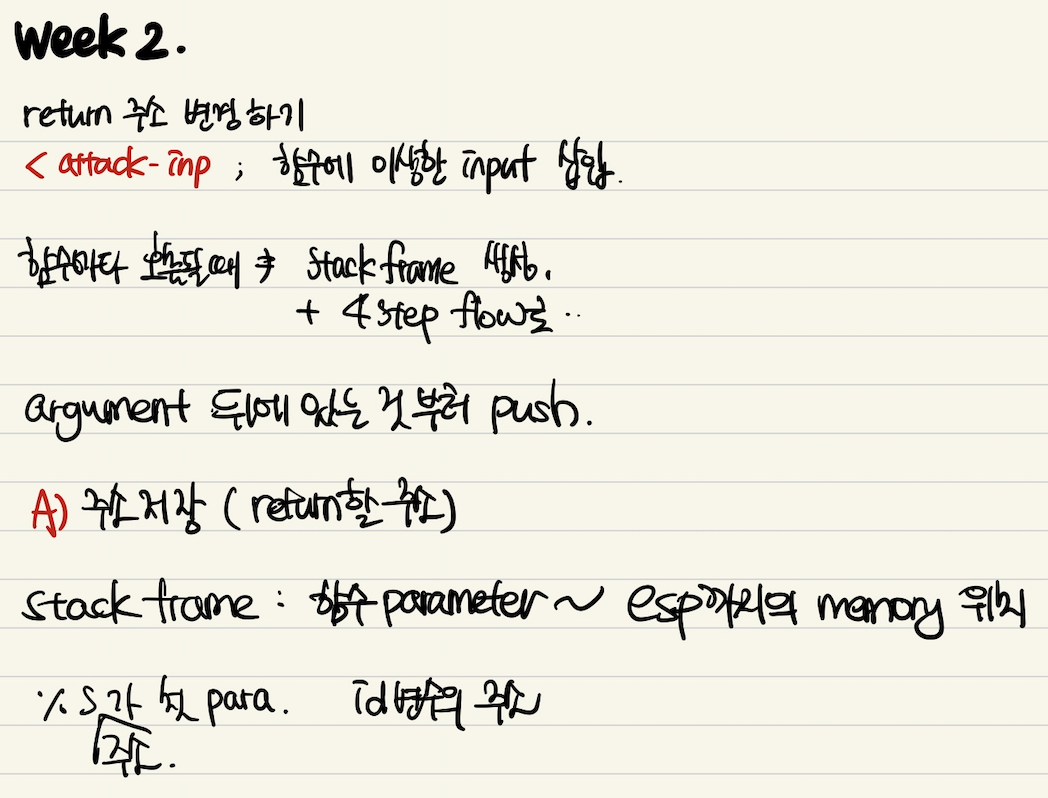 Week 2.
return 주소 변경하기
< attack-inp ; 함수에 이상한 input 삽입.
함수마다 호출될 때 → stack frame 생성.
+ 4 step flow로 ..
argument 뒤에 있는 것부터 push.
A) 주소저장 (return할 주소)
stack frame : 함수 parameter ~ esp까지의 memory 위치
%s가 첫 para. id변수의 주소
주소.